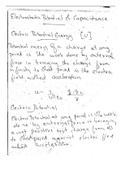 Electrostatic Potential & Capacitance
Electric Potential Energy [U]
Potential energy of a charge at any
point is the work done by external
force in bringing the charge from
infinity to that point in the electric
field without acceleration.
U =
Electric Potential
Electric Potential at any point is the work
done by external force in bringing a
unit positive test charge from
to that point against electric field
without acceleration.